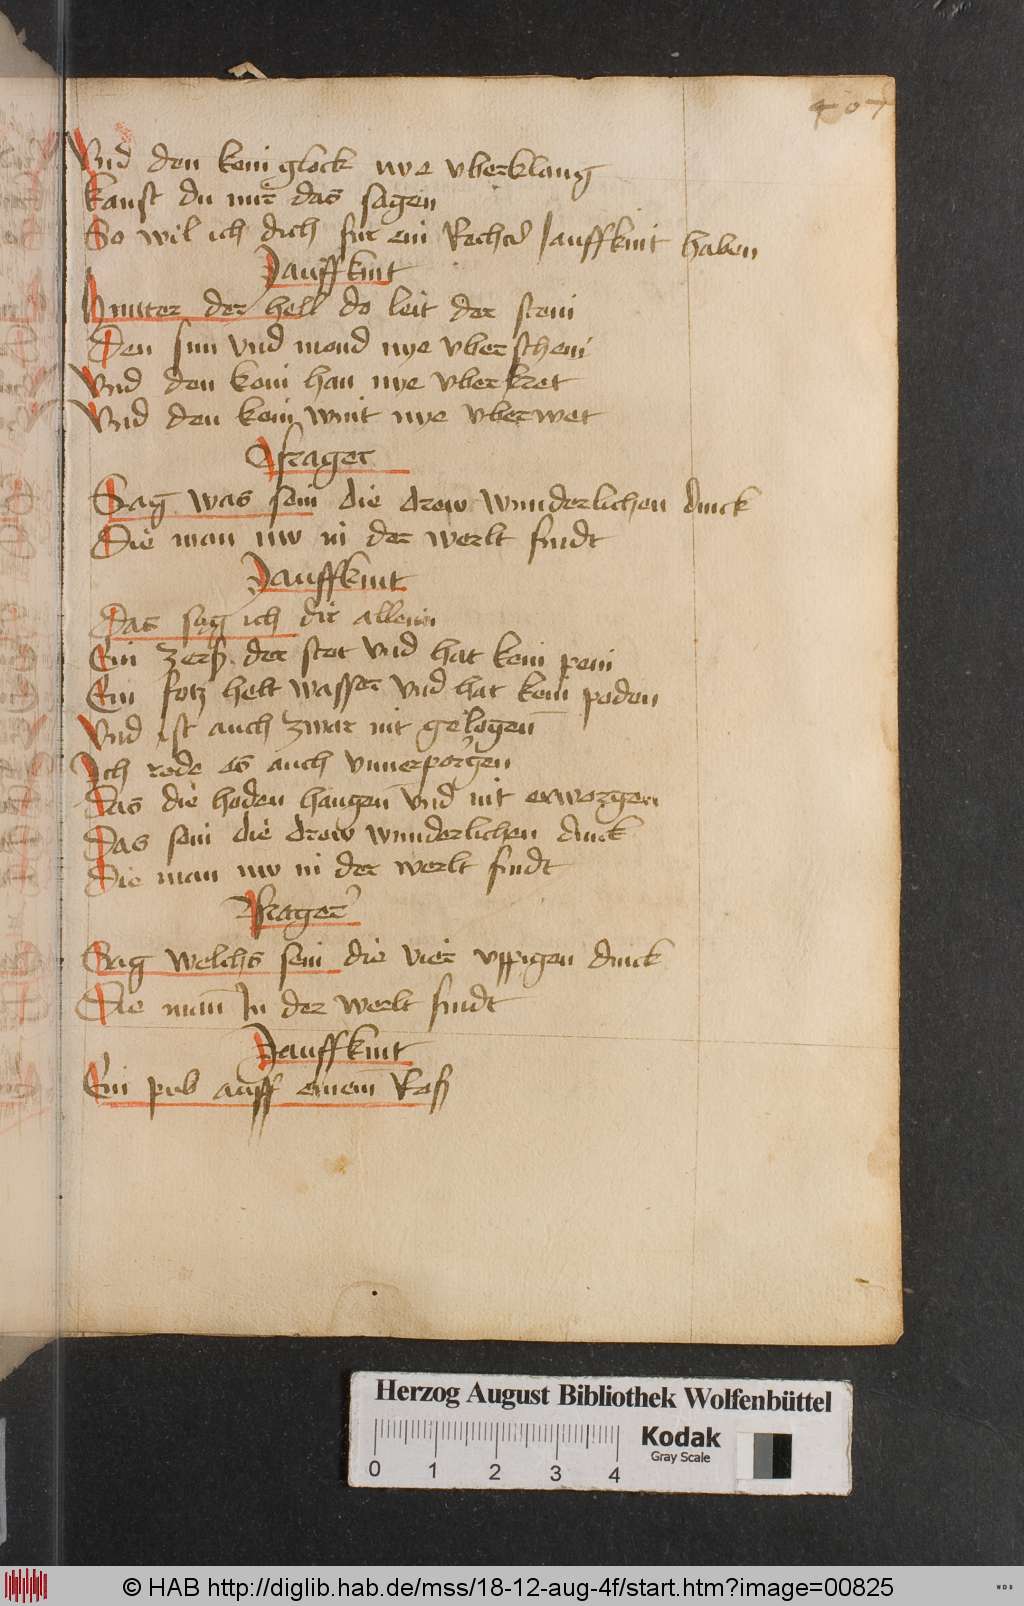 407
Vnd den kein glock nye vberklang
kanst du mir das sagen
So wil ich dich fur ein Rechtd Jauffkint haben
Jauffkint
Hinter der hell do leit der stein
Den sun vnd mond nye vberschein
Vnd den kein han nye vberkret
Vnd den kein wint nye vberwet
frager
Sag was sein die drew wunderlichen dinck
Die man nw in der werlt findt
Jauffkint
Das sag ich dir allein
Ein zerß der stet vnd hat kein pein
Ein fotz helt wasser vnd hat kein poden
Vnd ist auch zwar nit gelogen
Ich rede es auch vnuerporgen
Das die hoden hangen vnd nit erworgen
Das sein die drew wunderlichen dinck
Die man nw in der werlt findt
Frager
Sag welchs sein die vier vppigen dinck
Die man In der werlt findt
Jauffkint
Ein pub auff einem Roß
Herzog August Bibliothek Wolfenbüttel
Kodak
Gray Scale
0 1 2 3 4
© HAB http://diglib.hab.de/mss/18-12-aug-4f/start.htm?image=00825